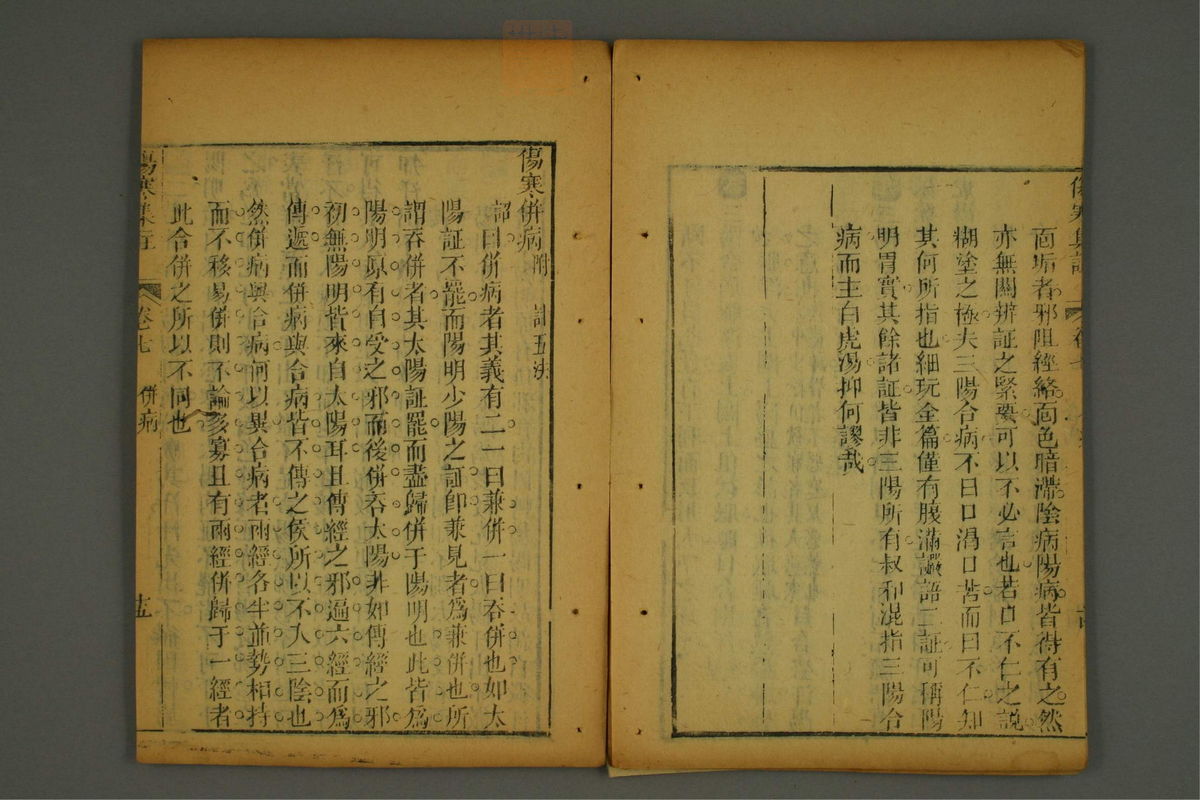 面垢者邪阻經絡面色暗滯陰病陽病皆得有之然
亦無關辨証之緊要可以不必言也若口不仁之說
糊塗之極夫三陽合病不曰口渴口苦而曰不仁知
其何所指也細玩全篇僅有腹滿譫語二証可稱陽
明胃實其餘諸証皆非三陽所有叔和混指三陽合
病而主白虎湯抑何謬哉
傷寒併病附 計五法
詔曰併病者其義有二一曰兼併一曰吞併也如太
陽証不罷而陽明少陽之証即兼見者爲兼併也所
謂吞併者其太陽証罷而盡歸併于陽明也此皆爲
陽明原有自受之邪而後併吞太陽非如傳經之邪
初無陽明皆來自太陽耳且傳經之邪遍六經而爲
傳遞而併病與合病皆不傳之候所以不入三陰也
然併病與合病何以異合病者兩經各半並勢相持
而不移易併則不論多寡且有兩經併歸于一經者
此合併之所以不同也
卷七 併病 十五